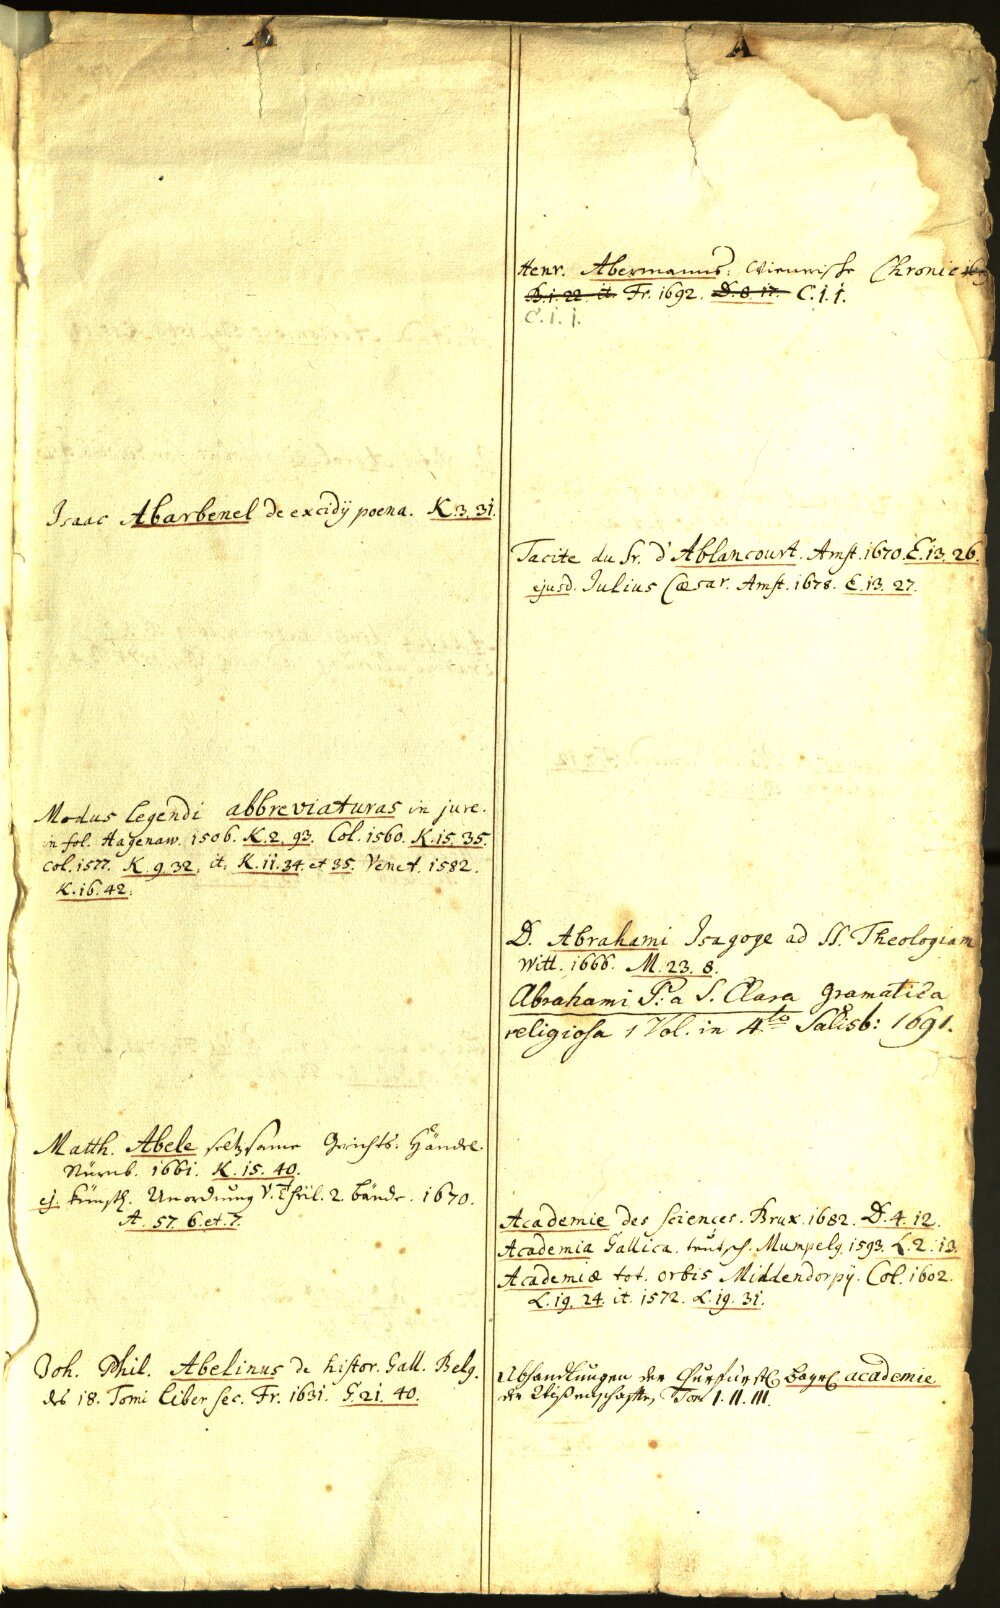 A
Isaac Abarbenel de excidÿ poena. K.3.31.
Modus legendi abbreviaturas in jure.
in fol. Hagenaw. 1506. K.2.93. Col. 1560. K.15.35.
Col. 1577. K.9.32. it. K.11.34. et 35. Venet. 1582.
K.16.42.
Matth. Abele seltzsame Gerichts-Händel.
Nürnb. 1661. K.15.40.
ej. künstl. Unordnung V. Theil. 2 Bände. 1670.
A. 57. 6. et. 7.
Joh. Phil. Abelinus de histor. Gall. Belg.
des 18. Tomi liber sec. Fr. 1631. G.21.40.
A
Henr. Abermanns: Wienrische Chronic
B.1.22. it. Fr. 1692. D.8.17. C.1.1.
C.1.1.
Tacite du Sr. d'Ablancourt. Amst. 1670. E.13.26.
ejusd. Julius Cæsar. Amst. 1678. E.13.27.
D. Abrahami Isagoge ad SS. Theologiam
Witt. 1666. M.23.8.
Abrahami P: a S. Clara gramatica
religiosa 1 Vol. in 4to Salisb: 1691.
Academie des sciences. Brux. 1682. D.4.12.
Academia Gallica. teutsch. Mumpelg. 1593. L.2.13.
Academiæ tot. orbis Middendorpÿ. Col. 1602.
L.19.24. it. 1572. L.19.31.
Abhandlungen der Churfürstl. Bayrl. academie
der Wißenschafften, Tom I. II. III.